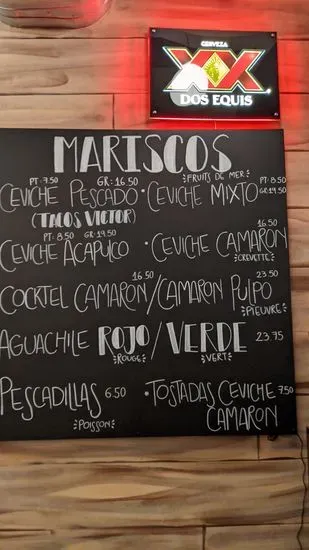 CERVEZA
XX
DOS EQUIS
MARISCOS
FRUITS DE MER
PT: 7.50 GR: 16.50 PT: 8.50
CEVICHE PESCADO • CEVICHE MIXTO GR: 19.50
(TACOS VICTOR)
PT: 8.50 GR: 19.50 16.50
CEVICHE ACAPULCO • CEVICHE CAMARON
CREVETTE
16.50 23.50
COCKTEL CAMARON/CAMARON PULPO
PIEUVRE
AGUACHILE ROJO/VERDE 23.75
ROUGE VERT
PESCADILLAS 6.50 • TOSTADAS CEVICHE 7.50
POISSON CAMARON